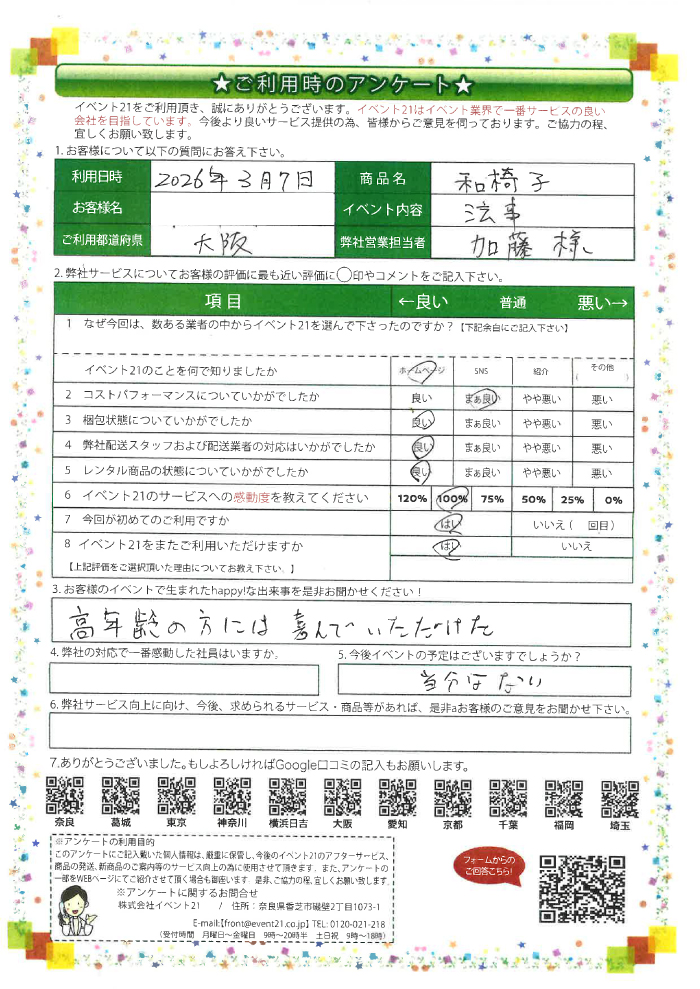 ★ご利用時のアンケート★
イベント21をご利用頂き、誠にありがとうございます。イベント21はイベント業界で一番サービスの良い
会社を目指しています。今後より良いサービス提供の為、皆様からご意見を伺っております。ご協力の程、
宜しくお願い致します。
1.お客様について以下の質問にお答え下さい。
利用日時 2026年3月7日 商品名 和椅子
お客様名 イベント内容 法事
ご利用都道府県 大阪 弊社営業担当者 加藤様
2.弊社サービスについてお客様の評価に最も近い評価に○印やコメントをご記入下さい。
項目 ←良い 普通 悪い→
1 なぜ今回は、数ある業者の中からイベント21を選んで下さったのですか?【下記余白にご記入下さい】
イベント21のことを何で知りましたか ホームページ SNS 紹介 その他( )
2 コストパフォーマンスについていかがでしたか 良い まぁ良い やや悪い 悪い
3 梱包状態についていかがでしたか 良い まぁ良い やや悪い 悪い
4 弊社配送スタッフおよび配送業者の対応はいかがでしたか 良い まぁ良い やや悪い 悪い
5 レンタル商品の状態についていかがでしたか 良い まぁ良い やや悪い 悪い
6 イベント21のサービスへの感動度を教えてください 120% 100% 75% 50% 25% 0%
7 今回が初めてのご利用ですか はい いいえ( 回目)
8 イベント21をまたご利用いただけますか はい いいえ
【上記評価をご選択頂いた理由についてお教え下さい。】
3.お客様のイベントで生まれたhappy!な出来事を是非お聞かせください!
高年齢の方には喜んでいただけた
4.弊社の対応で一番感動した社員はいますか。 5.今後イベントの予定はございますでしょうか?
当分はない
6.弊社サービス向上に向け、今後、求められるサービス・商品等があれば、是非aお客様のご意見をお聞かせ下さい。
7.ありがとうございました。もしよろしければGoogle口コミの記入もお願いします。
奈良 葛城 東京 神奈川 横浜日吉 大阪 愛知 京都 千葉 福岡 埼玉
※アンケートの利用目的
このアンケートにご記入戴いた個人情報は、厳重に保管し、今後のイベント21のアフターサービス、
商品の発送、新商品のご案内等のサービス向上の為に使用させて頂きます. また、アンケートの
一部をWEBページにてご紹介させて頂く場合も御座います. 是非、ご協力の程、宜しくお願い致します.
※アンケートに関するお問合せ
株式会社イベント21 / 住所:奈良県香芝市磯壁2丁目1073-1
E-mail:【front@event21.co.jp】 TEL: 0120-021-218
(受付時間 月曜日〜金曜日 9時〜20時半 土日祝 9時〜18時)
フォームからの
ご回答こちら!